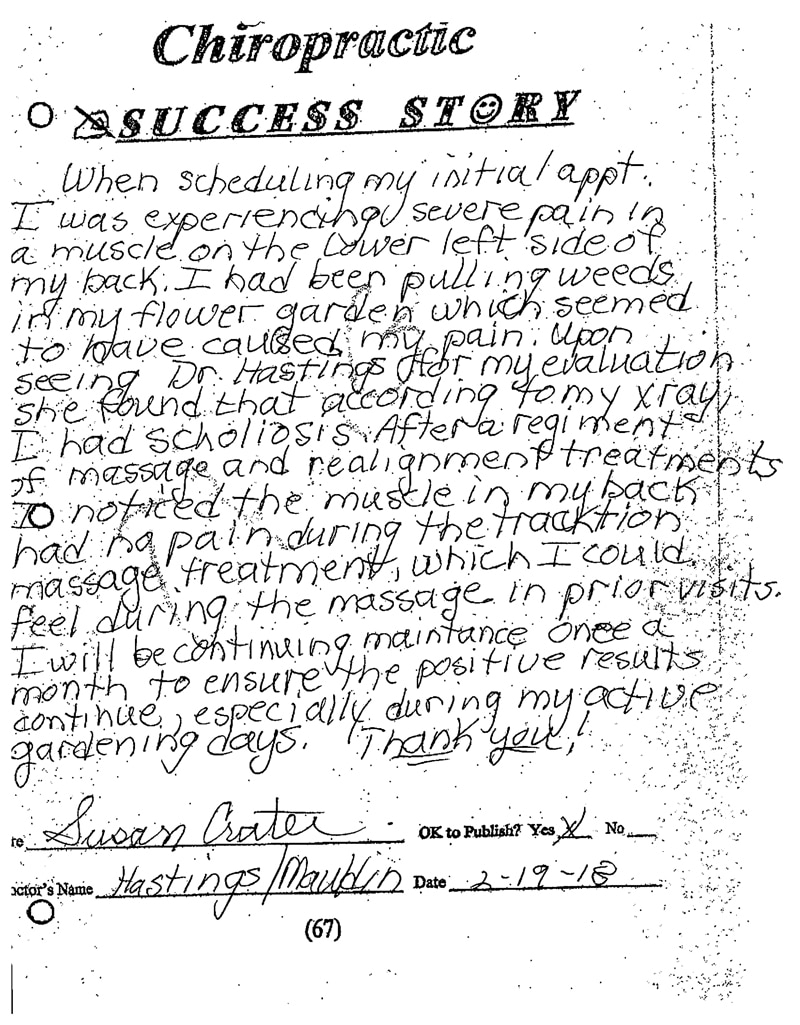 Chiropractic
SUCCESS STORY
When scheduling my initial appt.
I was experiencing severe pain in
a muscle on the lower left side of
my back. I had been pulling weeds
in my flower garden which seemed
to have caused my pain. Upon
seeing Dr. Hastings for my evaluation
she found that according to my xray,
I had scholiosis. After a regiment
of massage and realignment treatments
I noticed the muscle in my back
had no pain during the tracktion
massage treatment, which I could
feel during the massage in prior visits.
I will be continuing maintance once a
month to ensure the positive results
continue, especially during my active
gardening days. Thank you!
re Susan Crater OK to Publish? Yes X No
octor's Name Hastings/Mauldin Date 2-19-18
(67)